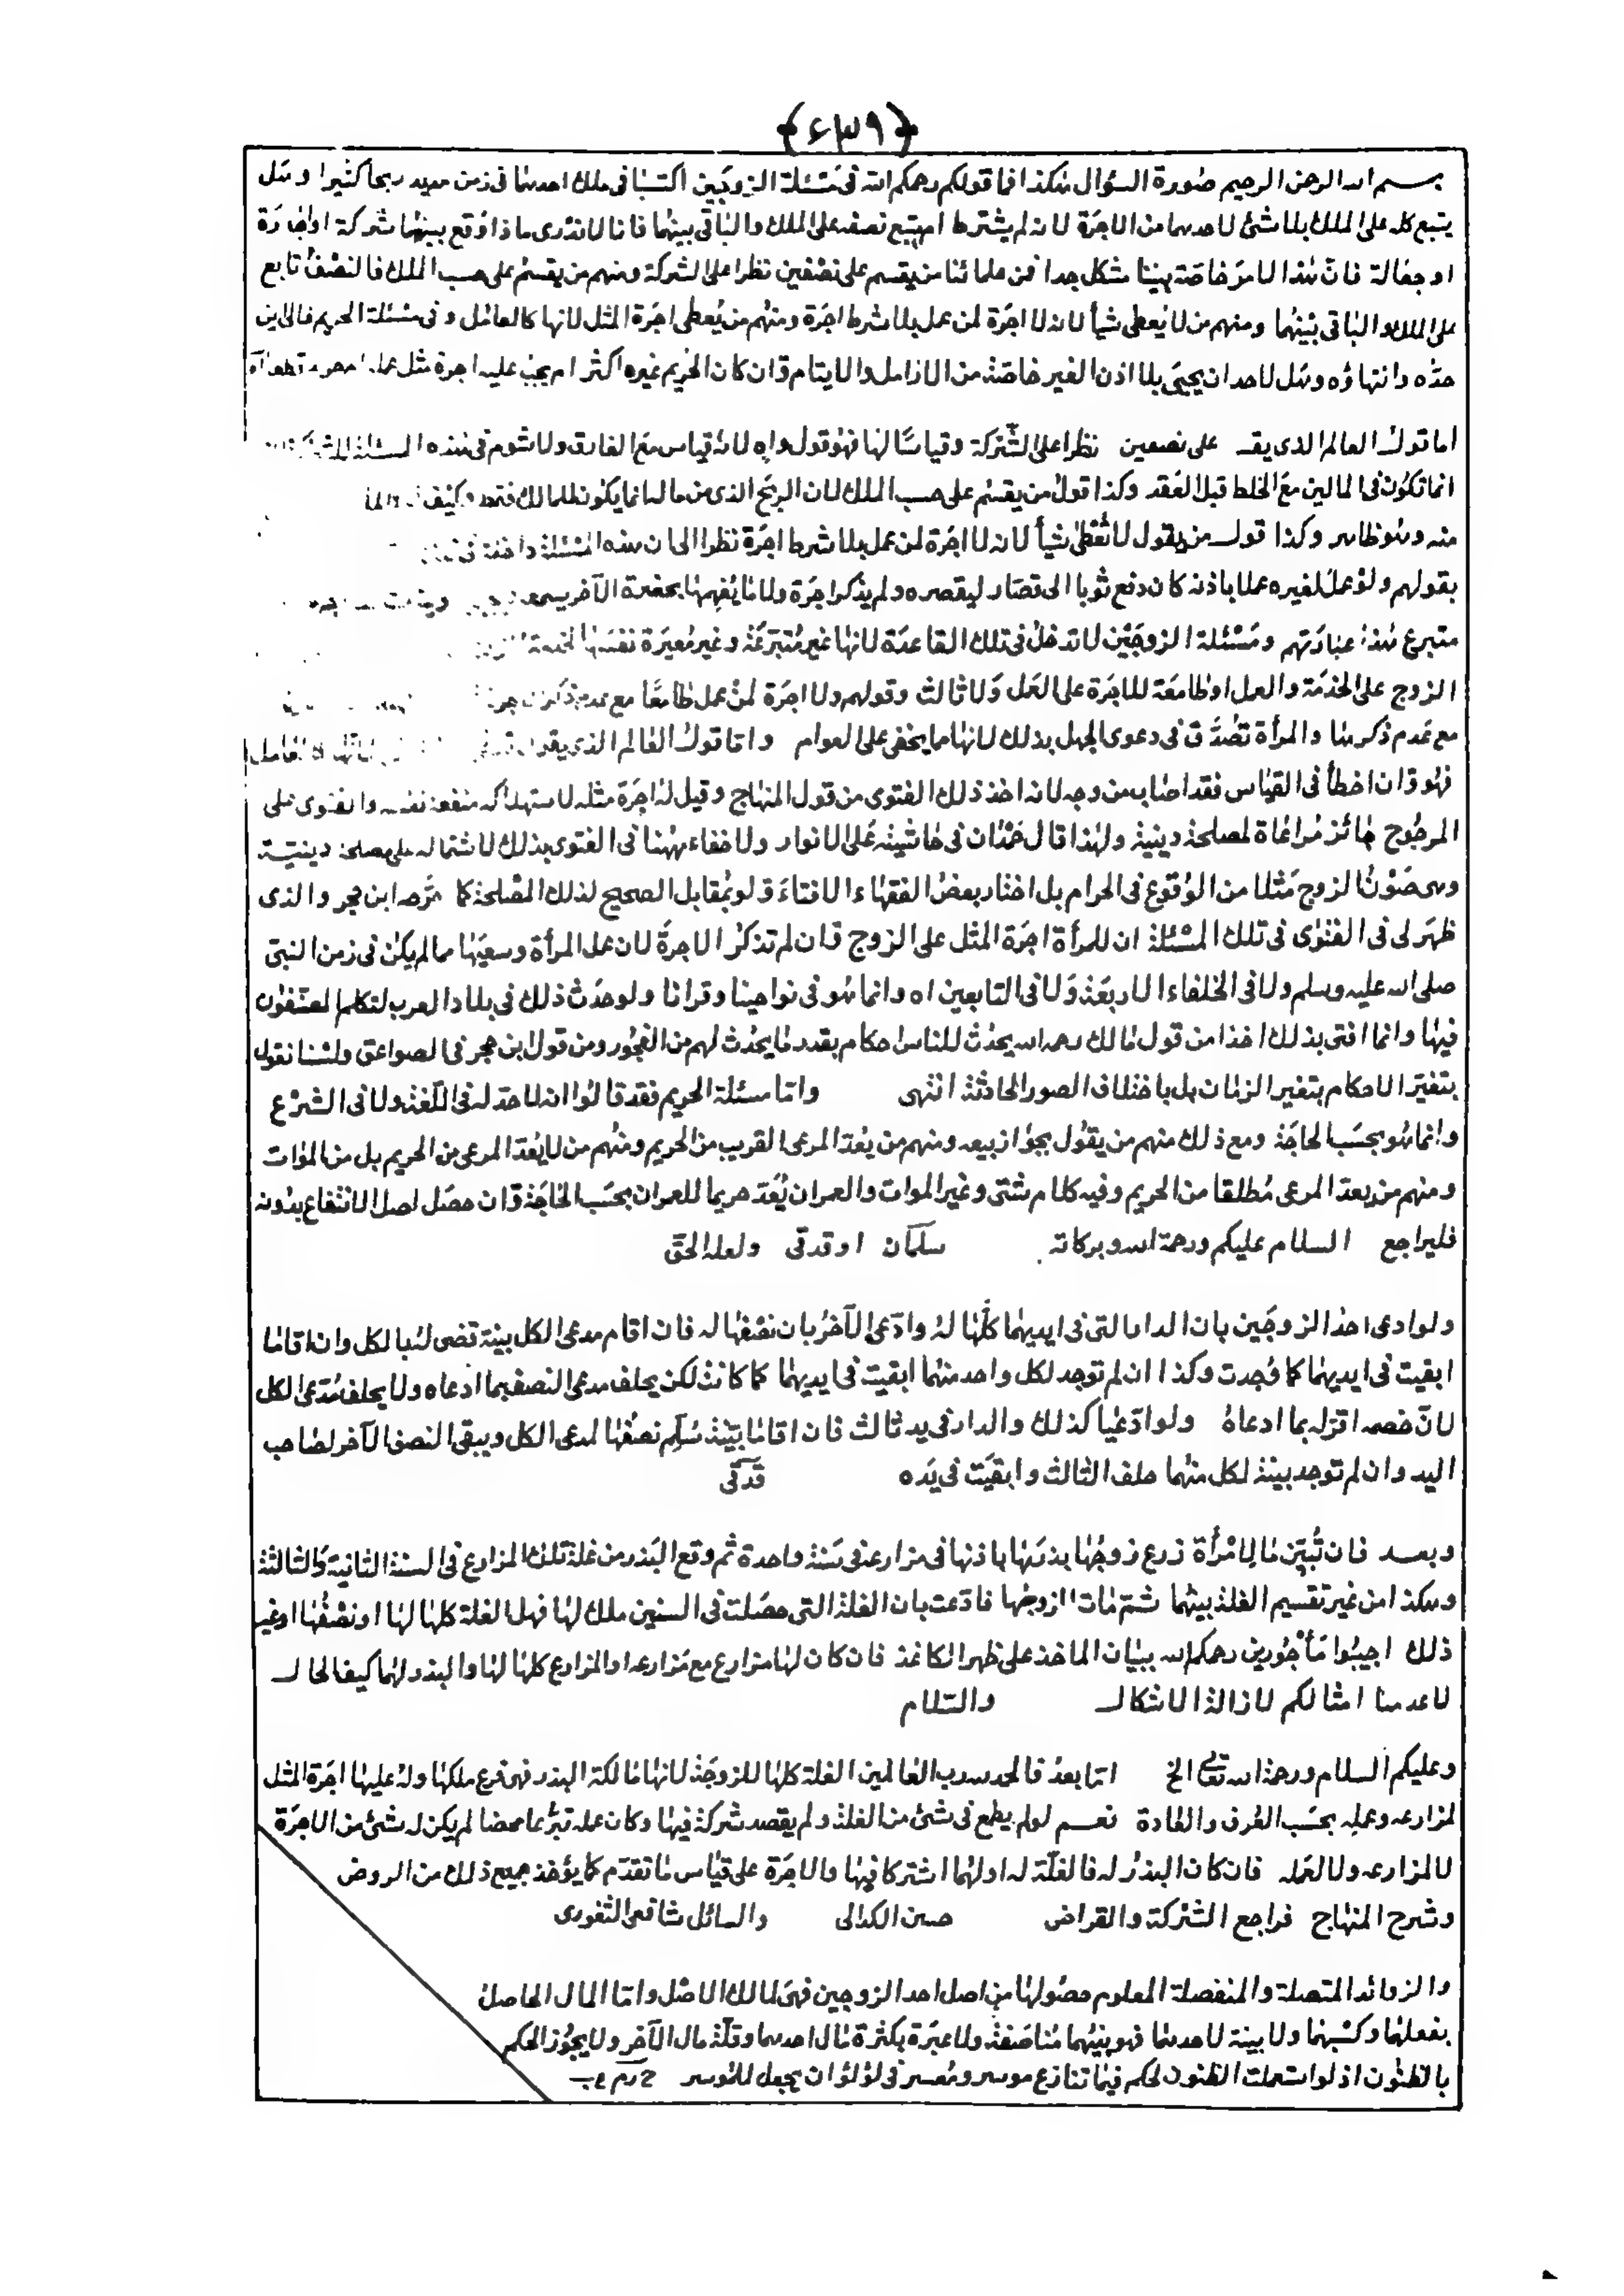 ﴿٤٣٩﴾
بسم الله الرحمن الرحيم صورة السؤال هكذا فما قولكم رحمكم الله فى مسئلة الزوجين اكتسبا فى ملك احدهما فى زمن مديد ربحا كثيرا وهل
يتبع كله على الملك بلا شئ لاحدهما من الاجرة لانه لم يشترط ام يتبع نصفه على الملك والباقى بينهما فانا لا ندرى ماذا اوقع بينهما شركة او اجارة
او جعالة فان هذا الامر خاصة بيننا مشكل جدا فمن علمائنا من يقسم على نصفين نظرا على الشركة ومنهم من يقسم على حسب الملك فالنصف تابع
على الملك والباقى بينهما ومنهم من لا يعطى شيأ لانه لا اجرة لمن عمل بلا شرط اجرة ومنهم من يعطى اجرة المثل لانها كالعامل وفى مسئلة الحريم فالى اين
حده وانتهاؤه وهل لاحد ان يحيى بلا اذن الغير خاصة من الارامل والايتام وان كان الحريم غيره اكثر ام يجب عليه اجرة مثل
اما قول العالم الذى على نصفين نظرا على الشركة وقياسا لها فهو قول واه لانه قياس مع الفارق ولا شوم فى هذه المسئلة
انما تكون فى المالين مع الخلط قبل العقد وكذا قول من يقسم على حسب الملك لان الربح الذى من مالها انما يكون للمالك فقط وكيف
منه وهو ظاهر وكذا قول من يقول لا تعطى شيأ لانه لا اجرة لمن عمل بلا شرط اجرة نظرا الى ان هذه المسئلة داخلة فى
بقولهم ولو عمل لغيره عملا باذنه كان دفع ثوبا الى قصار ليقصره ولم يذكر اجرة ولا ما يفهمها بحضرة الآخر
متبرع هذه عبارتهم ومسئلة الزوجين لا تدخل فى تلك القاعدة لانها غير متبرعة وغير معيرة نفسها لخدمة
الزوج على الخدمة والعمل او طامعة للاجرة على العمل ولا ثالث وقولهم ولا اجرة لمن عمل طامعا مع عدم ذكر
مع عدم ذكرها والمرأة تصدق فى دعوى الجهل بذلك لانها مما يخفى على العوام واما قول العالم الذى يقول
فهو وان اخطأ فى القياس فقد اصاب من وجه لانه اخذ ذلك الفتوى من قول المنهاج وقيل له اجرة مثله لاستهلاكه منفعة نفسه والفتوى على
المرجوح جائز مراعاة لمصلحة دينية ولهذا قال حمدان فى حاشيته على الانوار ولا خفاء ههنا فى الفتوى بذلك لاشتماله على مصلحة دينية
وهى صون الزوج مثلا من الوقوع فى الحرام بل اختار بعض الفقهاء الافتاء ولو بمقابل الصحيح لذلك المصلحة كما صرحه ابن حجر والذى
ظهر لى فى الفتوى فى تلك المسئلة ان للمرأة اجرة المثل على الزوج وان لم تذكر الاجرة لان عمل المرأة وسعيها مما لم يكن فى زمن النبى
صلى الله عليه وسلم ولا فى الخلفاء الاربعة ولا فى التابعين اه وانما هو فى نواحينا وقرانا ولو حدث ذلك فى بلاد العرب لتكلم المصنفون
فيها وانما افتى بذلك اخذا من قول مالك رحمه الله يحدث للناس احكام بقدر ما يحدث لهم من الفجور ومن قول ابن حجر فى الصواعق ولسنا نقول
بتغير الاحكام بتغير الزمان بل باختلاف الصور الحادثة انتهى واما مسئلة الحريم فقد قالوا انه لا حد له فى اللغة ولا فى الشرع
وانما هو بحسب الحاجة ومع ذلك منهم من يقول بجواز بيعه ومنهم من يعد المرعى القريب من الحريم ومنهم من لا يعد المرعى من الحريم بل من الموات
ومنهم من يعد المرعى مطلقا من الحريم وفيه كلام شتى وغير الموات والعمران يعد حريما للعمران بحسب الحاجة وان حصل اصل الانتفاع بدونه
فليراجع السلام عليكم ورحمة الله وبركاته سلمان اوقدقى ولعله الحق
ولو ادعى احد الزوجين بان الدار التى فى ايديهما كلها له وادعى الآخر بان نصفها له فان اقام مدعى الكل بينة تقضى له بالكل وان اقاما
ابقيت فى ايديهما كما وجدت وكذا ان لم توجد لكل واحد منهما ابقيت فى ايديهما كما كانت لكن يحلف مدعى النصف بما ادعاه ولا يحلف مدعى الكل
لان خصمه اقر له بما ادعاه ولو ادعيا كذلك والدار فى يد ثالث فان اقاما بينة سلم نصفها لمدعى الكل ويبقى النصف الآخر لصاحب
اليد وان لم توجد بينة لكل منهما حلف الثالث وابقيت فى يده قدقى
وبعد فان تبين ما لامرأة زرع زوجها بذرها باذنها فى مزارعه فى سنة واحدة ثم وقع البذر من غلة تلك المزارع فى السنة الثانية والثالثة
وهكذا من غير تقسيم الغلة بينهما ثم مات الزوجها فادعت بان الغلة التى حصلت فى السنين ملك لها فهل الغلة كلها لها او نصفها او غير
ذلك اجيبوا مأجورين رحمكم الله ببيان المأخذ على ظهر الكاغذ فان كان لها مزارع مع مزارعه او المزارع كلها لها والبذر لهما كيف الحال
لا عدمنا امثالكم لازالة الاشكال والسلام
وعليكم السلام ورحمة الله تعالى الخ اما بعد فالحمد لله رب العالمين الغلة كلها للزوجة لانها مالكة البذر فهى فرع ملكها وله عليها اجرة المثل
لمزارعه وعمله بحسب العرف والعادة نعم لو لم يطمع فى شئ من الغلة ولم يقصد شركة فيها وكان عمله تبرعا محضا لم يكن له شئ من الاجرة
لا لمزارعه ولا لعمله فان كان البذر له فالغلة له او لهما اشتركا فيها والاجرة على قياس ما تقدم كما يؤخذ جميع ذلك من الروض
وشرح المنهاج فراجع الشركة والقراض حسن الكدالى والسائل شافعى الثغورى
والزوائد المتصلة والمنفصلة المعلوم حصولها من اصل احد الزوجين فهى لمالك الاصل واما المال الحاصل
بفعلهما وكسبهما ولا بينة لاحدهما فهو بينهما مناصفة ولا عبرة بكثرة مال احدهما وقلة مال الآخر ولا يجوز الحكم
بالظنون اذ لو استعملت الظنون لحكم فيما تنازع موسر ومعسر فى لؤلؤ ان يجعل للموسر